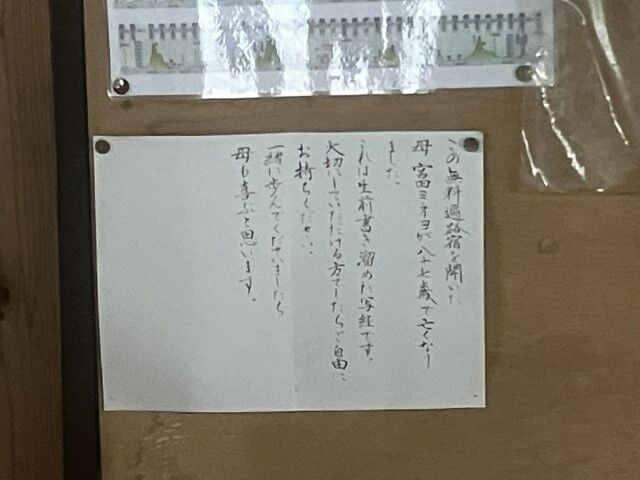 この無料遍路宿を開いた
母 宮田ミネヨが八十七歳で亡くなり
ました。
これは生前書き溜めた写経です。
大切にしていただける方でしたらご自由に
お持ちください。
一緒に歩んでくださいましたら
母も喜ぶと思います。